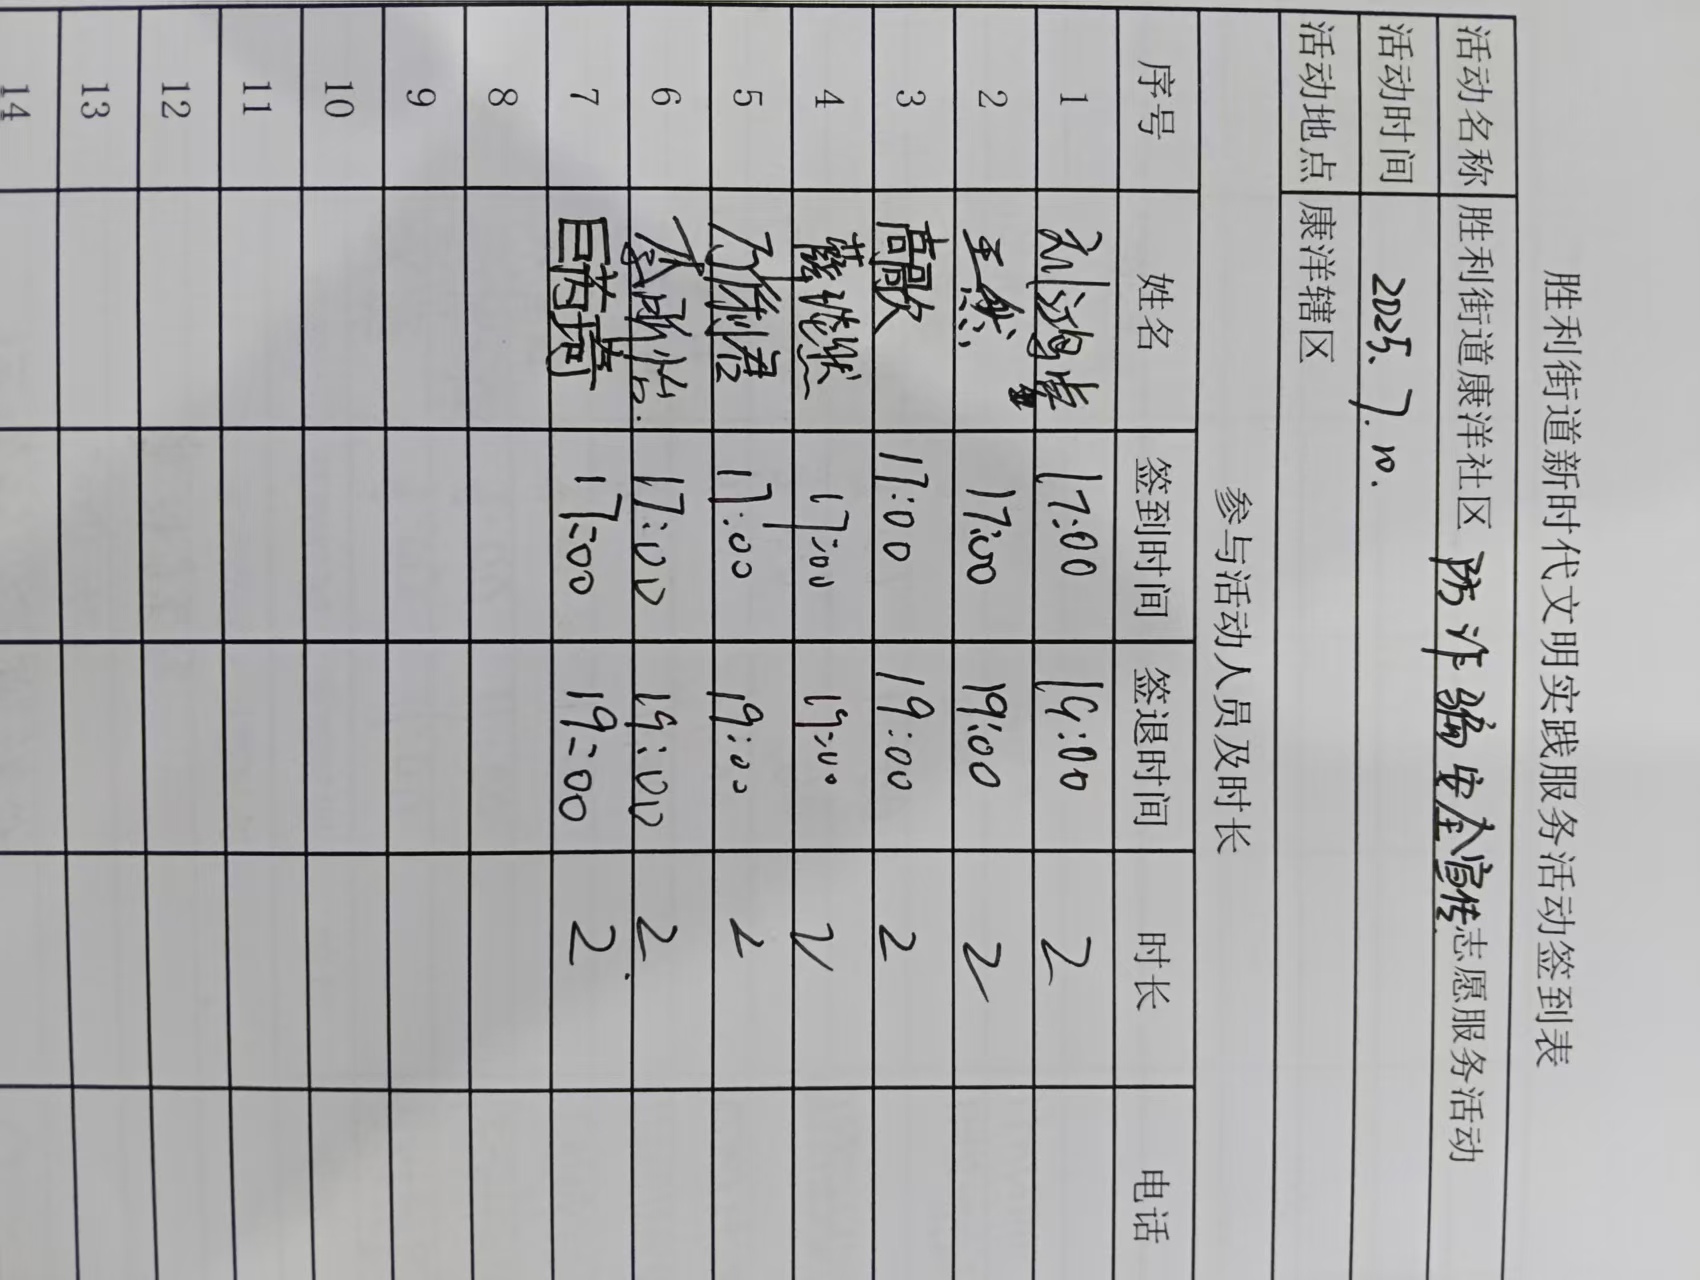 胜利街道新时代文明实践服务活动签到表
活动名称 胜利街道康洋社区 防诈骗安全宣传志愿服务活动
活动时间 2025.7.10.
活动地点 康洋辖区
参与活动人员及时长
序号 姓名 签到时间 签退时间 时长 电话
1 17:00 19:00 2
2 王然 17:00 19:00 2
3 高歌 17:00 19:00 2
4 17:00 19:00 2
5 17:00 19:00 2
6 17:00 19:00 2
7 17:00 19:00 2
8
9
10
11
12
13
14